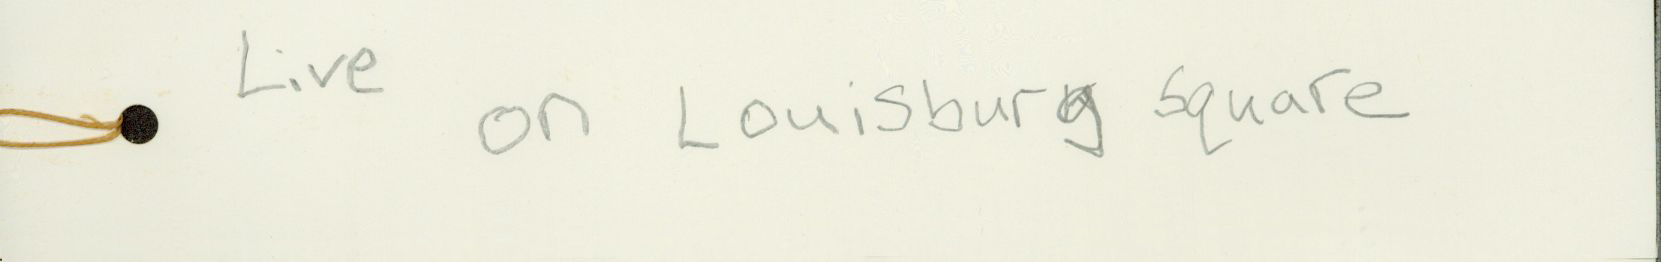 Live on Louisburg Square